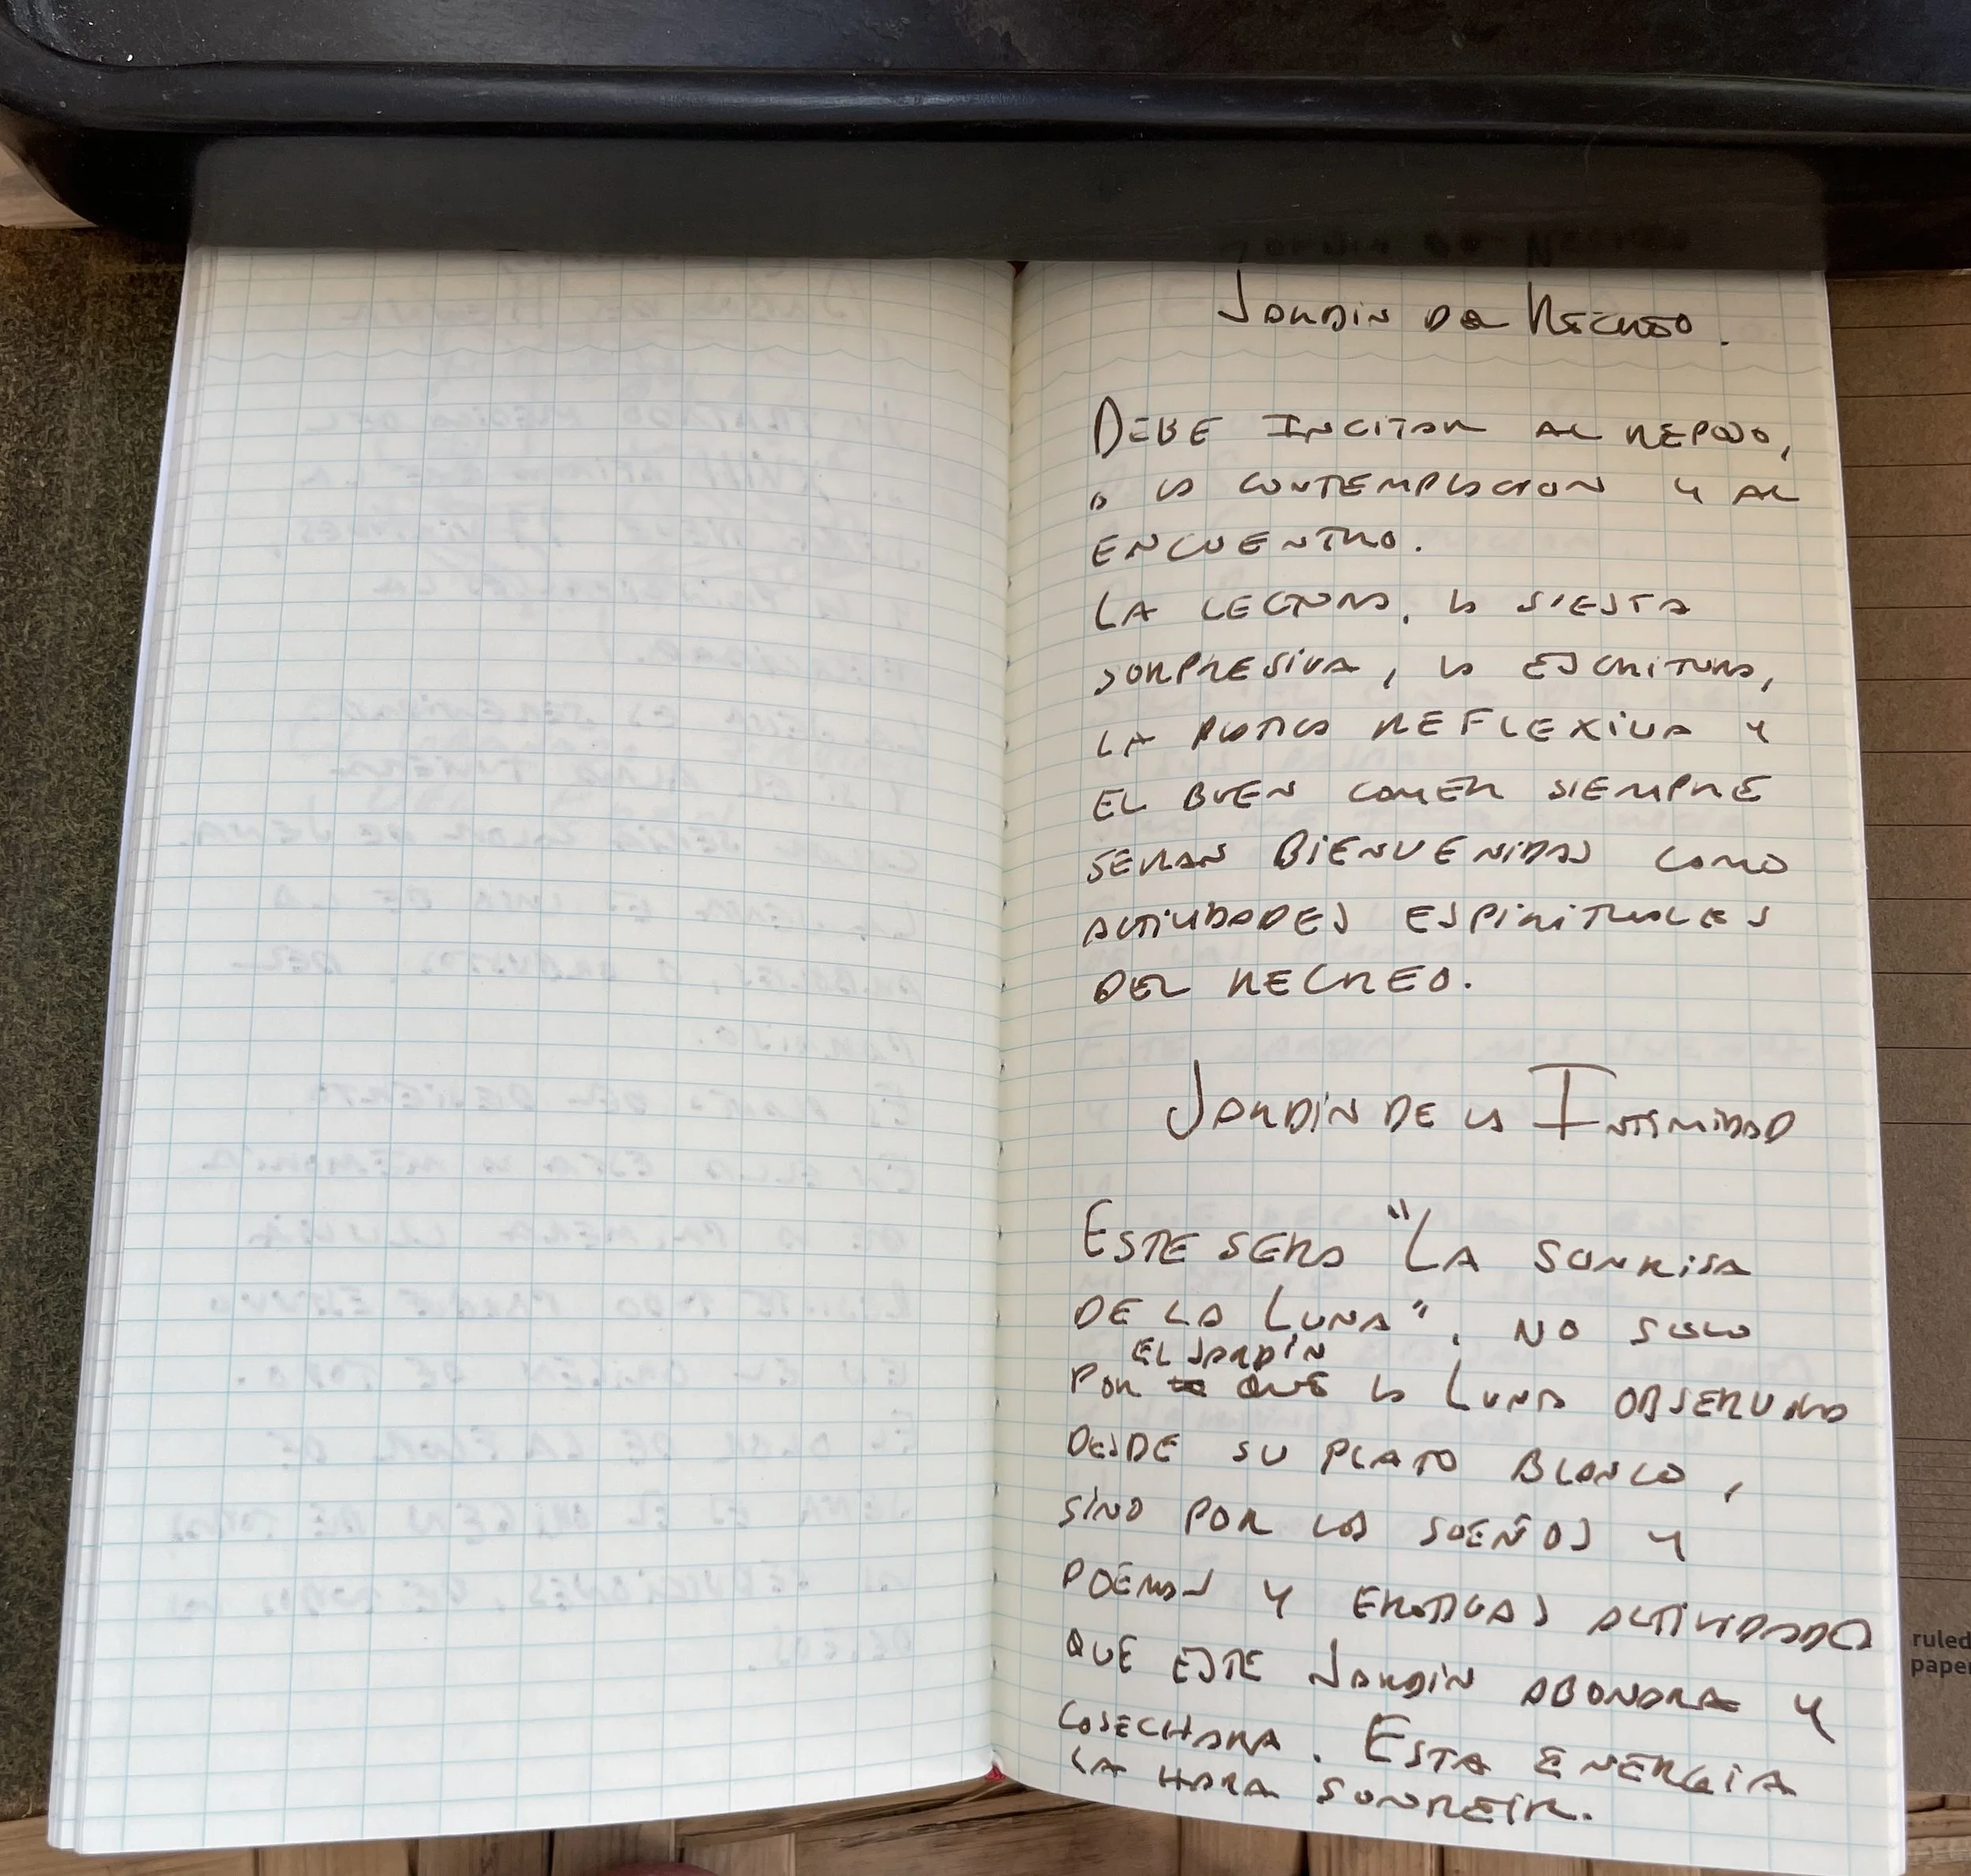 JARDIN DE RECREO.
DEBE INCITAR AL REPOSO,
A LA CONTEMPLACION Y AL
ENCUENTRO.
LA LECTURA, LA SIESTA
SORPRESIVA, LA ESCRITURA,
LA PLATICA REFLEXIVA Y
EL BUEN COMER SIEMPRE
SERAN BIENVENIDAS COMO
ACTIVIDADES ESPIRITUALES
DEL RECREO.
JARDIN DE LA INTIMIDAD
ESTE SERA "LA SONRISA
DE LA LUNA", NO SOLO
EL JARDIN
POR QUE LA LUNA OBSERVARA
DESDE SU PLATO BLANCO,
SINO POR LOS SUEÑOS Y
POEMAS Y EROTICAS ACTIVIDADES
QUE ESTE JARDIN ABONARA Y
COSECHARA. ESTA ENERGIA
LA HARA SONREIR.
ruled
paper